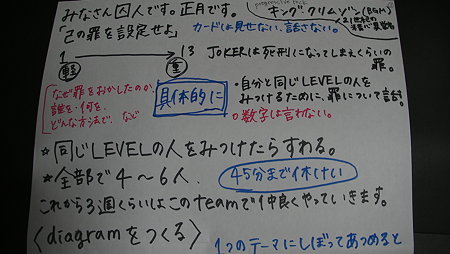 progressive rock
みなさん囚人です。正月です。
キングクリムゾン(BGM)
「この罪を設定せよ」
カードは見せない、話さない。
21世紀の精神異常者
1 → 13
軽 重
JOKERは死刑になってしまえくらいの罪。
なぜ罪をおかしたのか、
誰を・何を、
どんな方法で、など
具体的に
・自分と同じLEVELの人を
みつけるために、罪について話す。
○数字は言わない。
★同じLEVELの人をみつけたらすわる。
★全部で4〜6人、
45分まで休けい
これから3週くらいはこのteamで仲良くやっていきます。
〈diagramをつくる〉
1つのテーマにしぼってあつめると